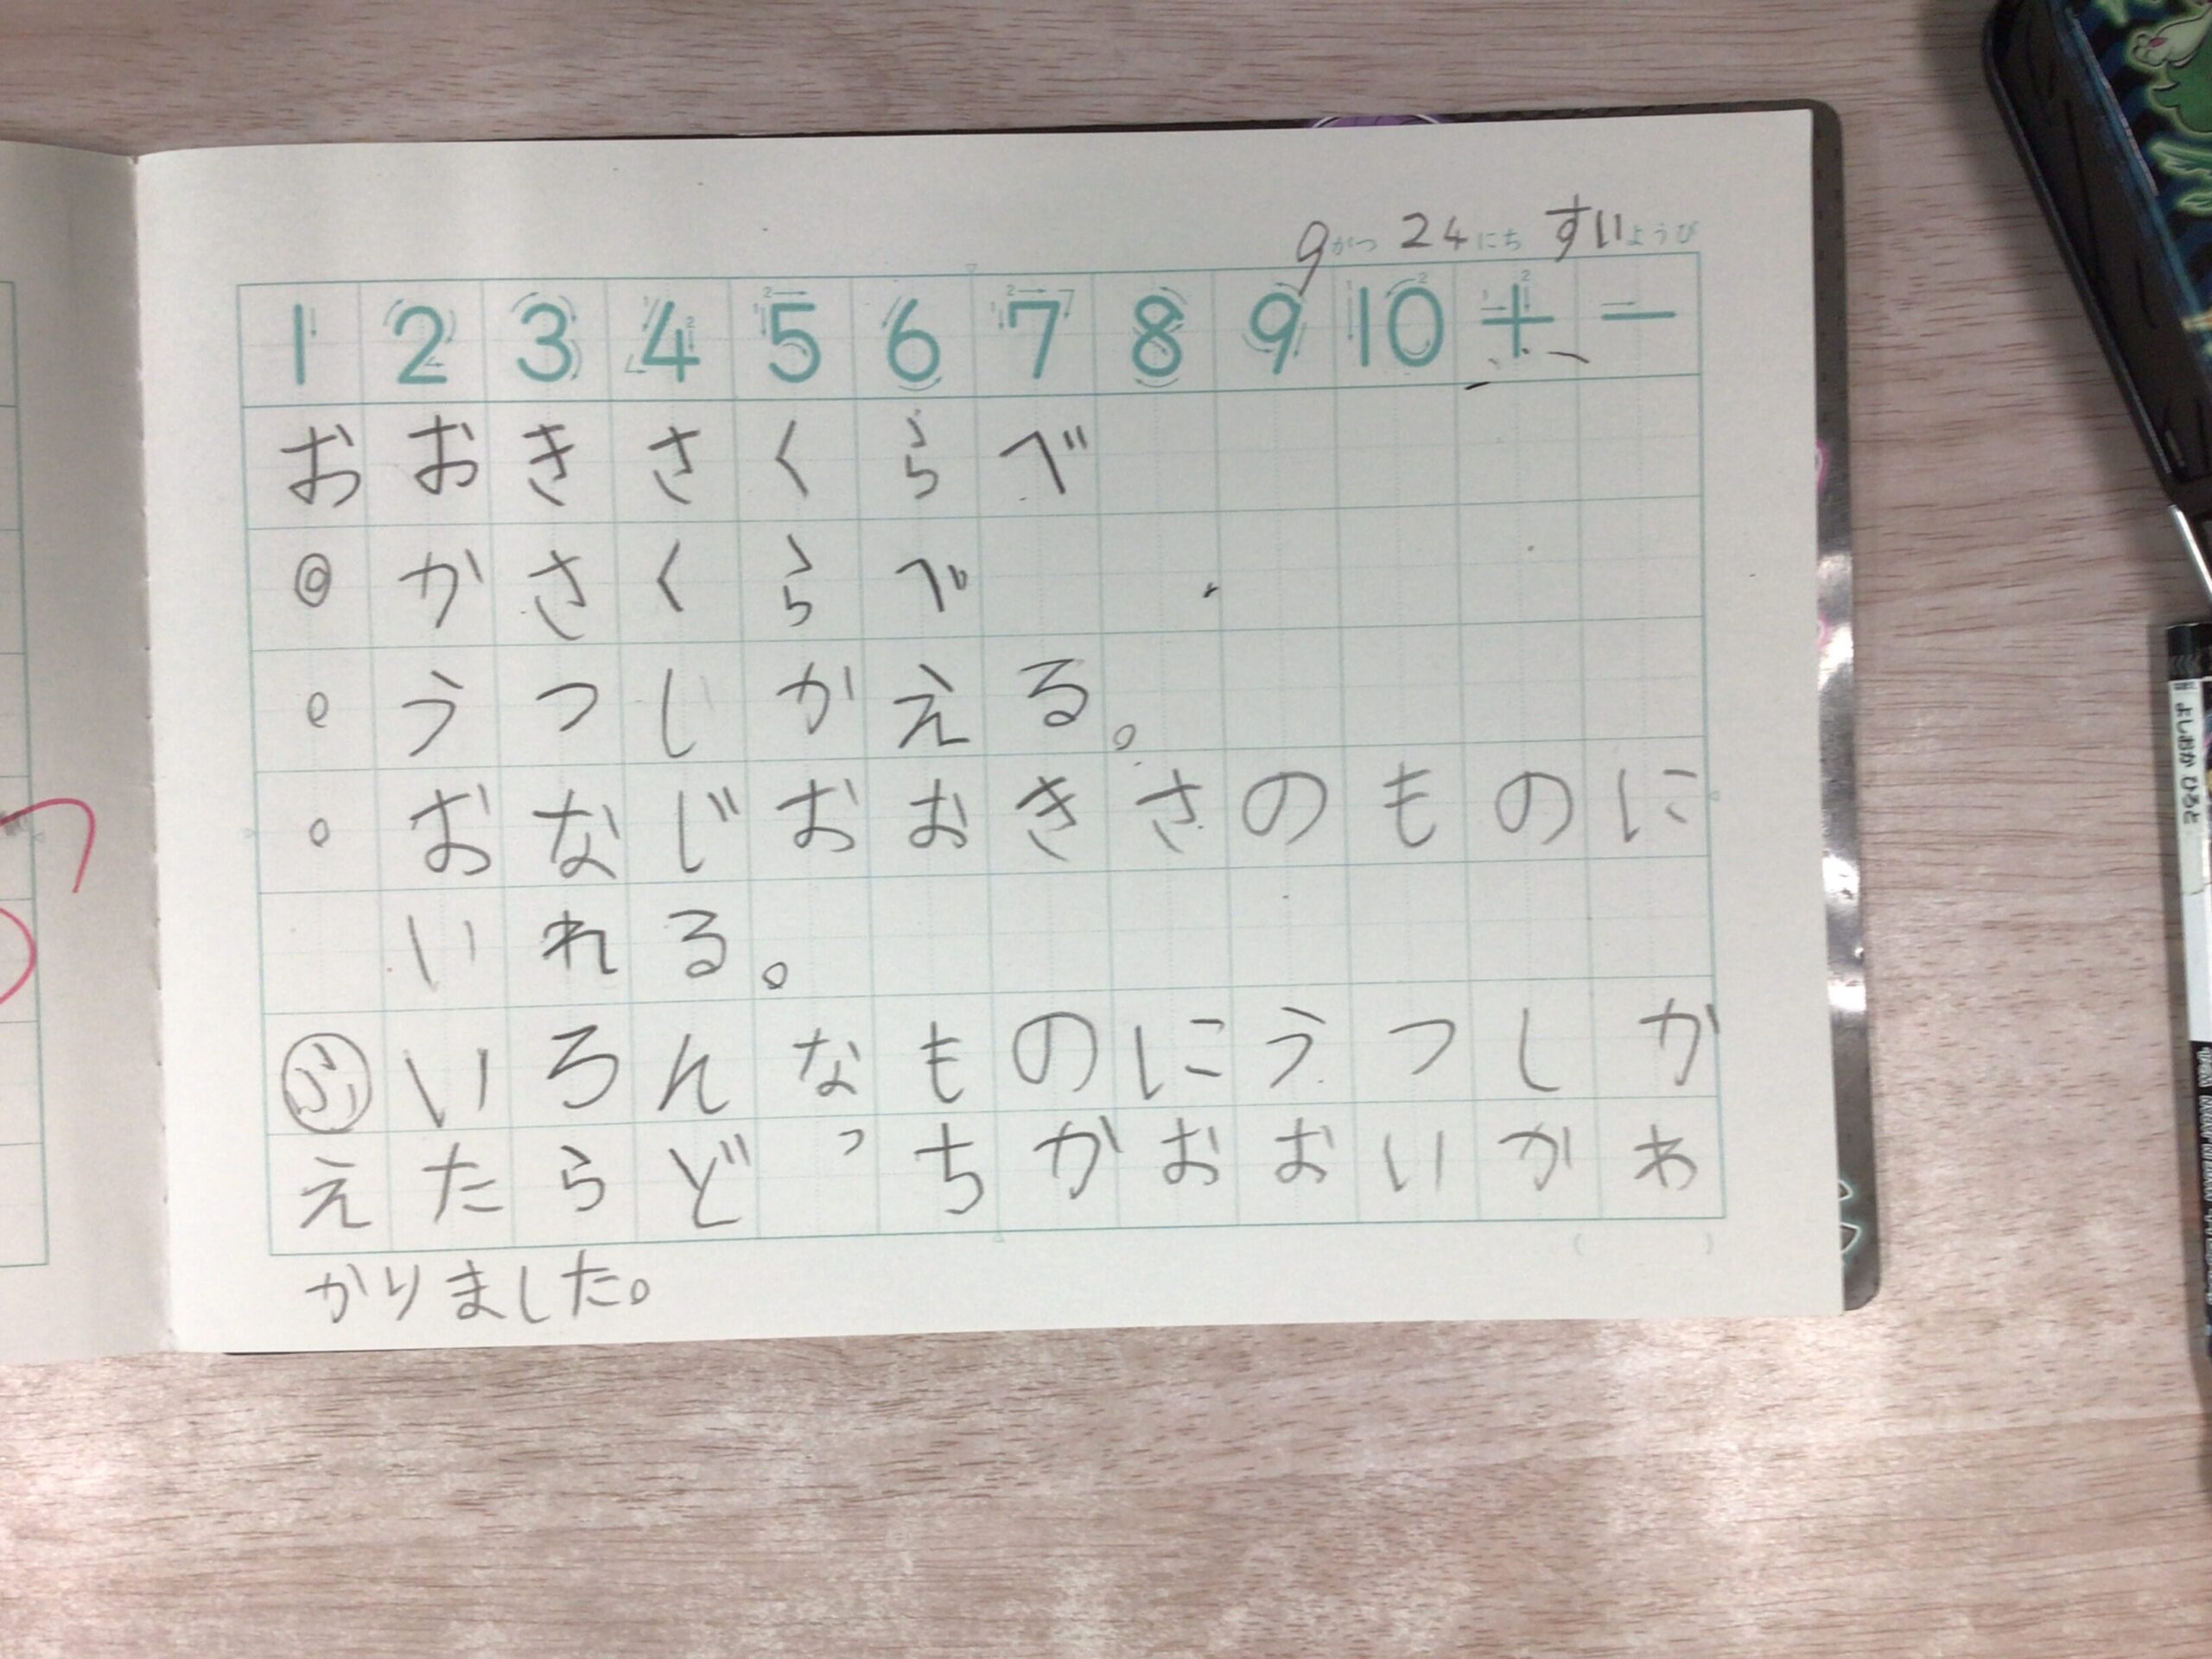 9がつ 24にち すいようび
1 2 3 4 5 6 7 8 9 10 + −
おおきさくらべ
◎かさくらべ
○うつしかえる。
○おなじおおきさのものに
いれる。
ふいろんなものにうつしか
えたらどっちがおおいかわ
かりました。
よしおか ひろと